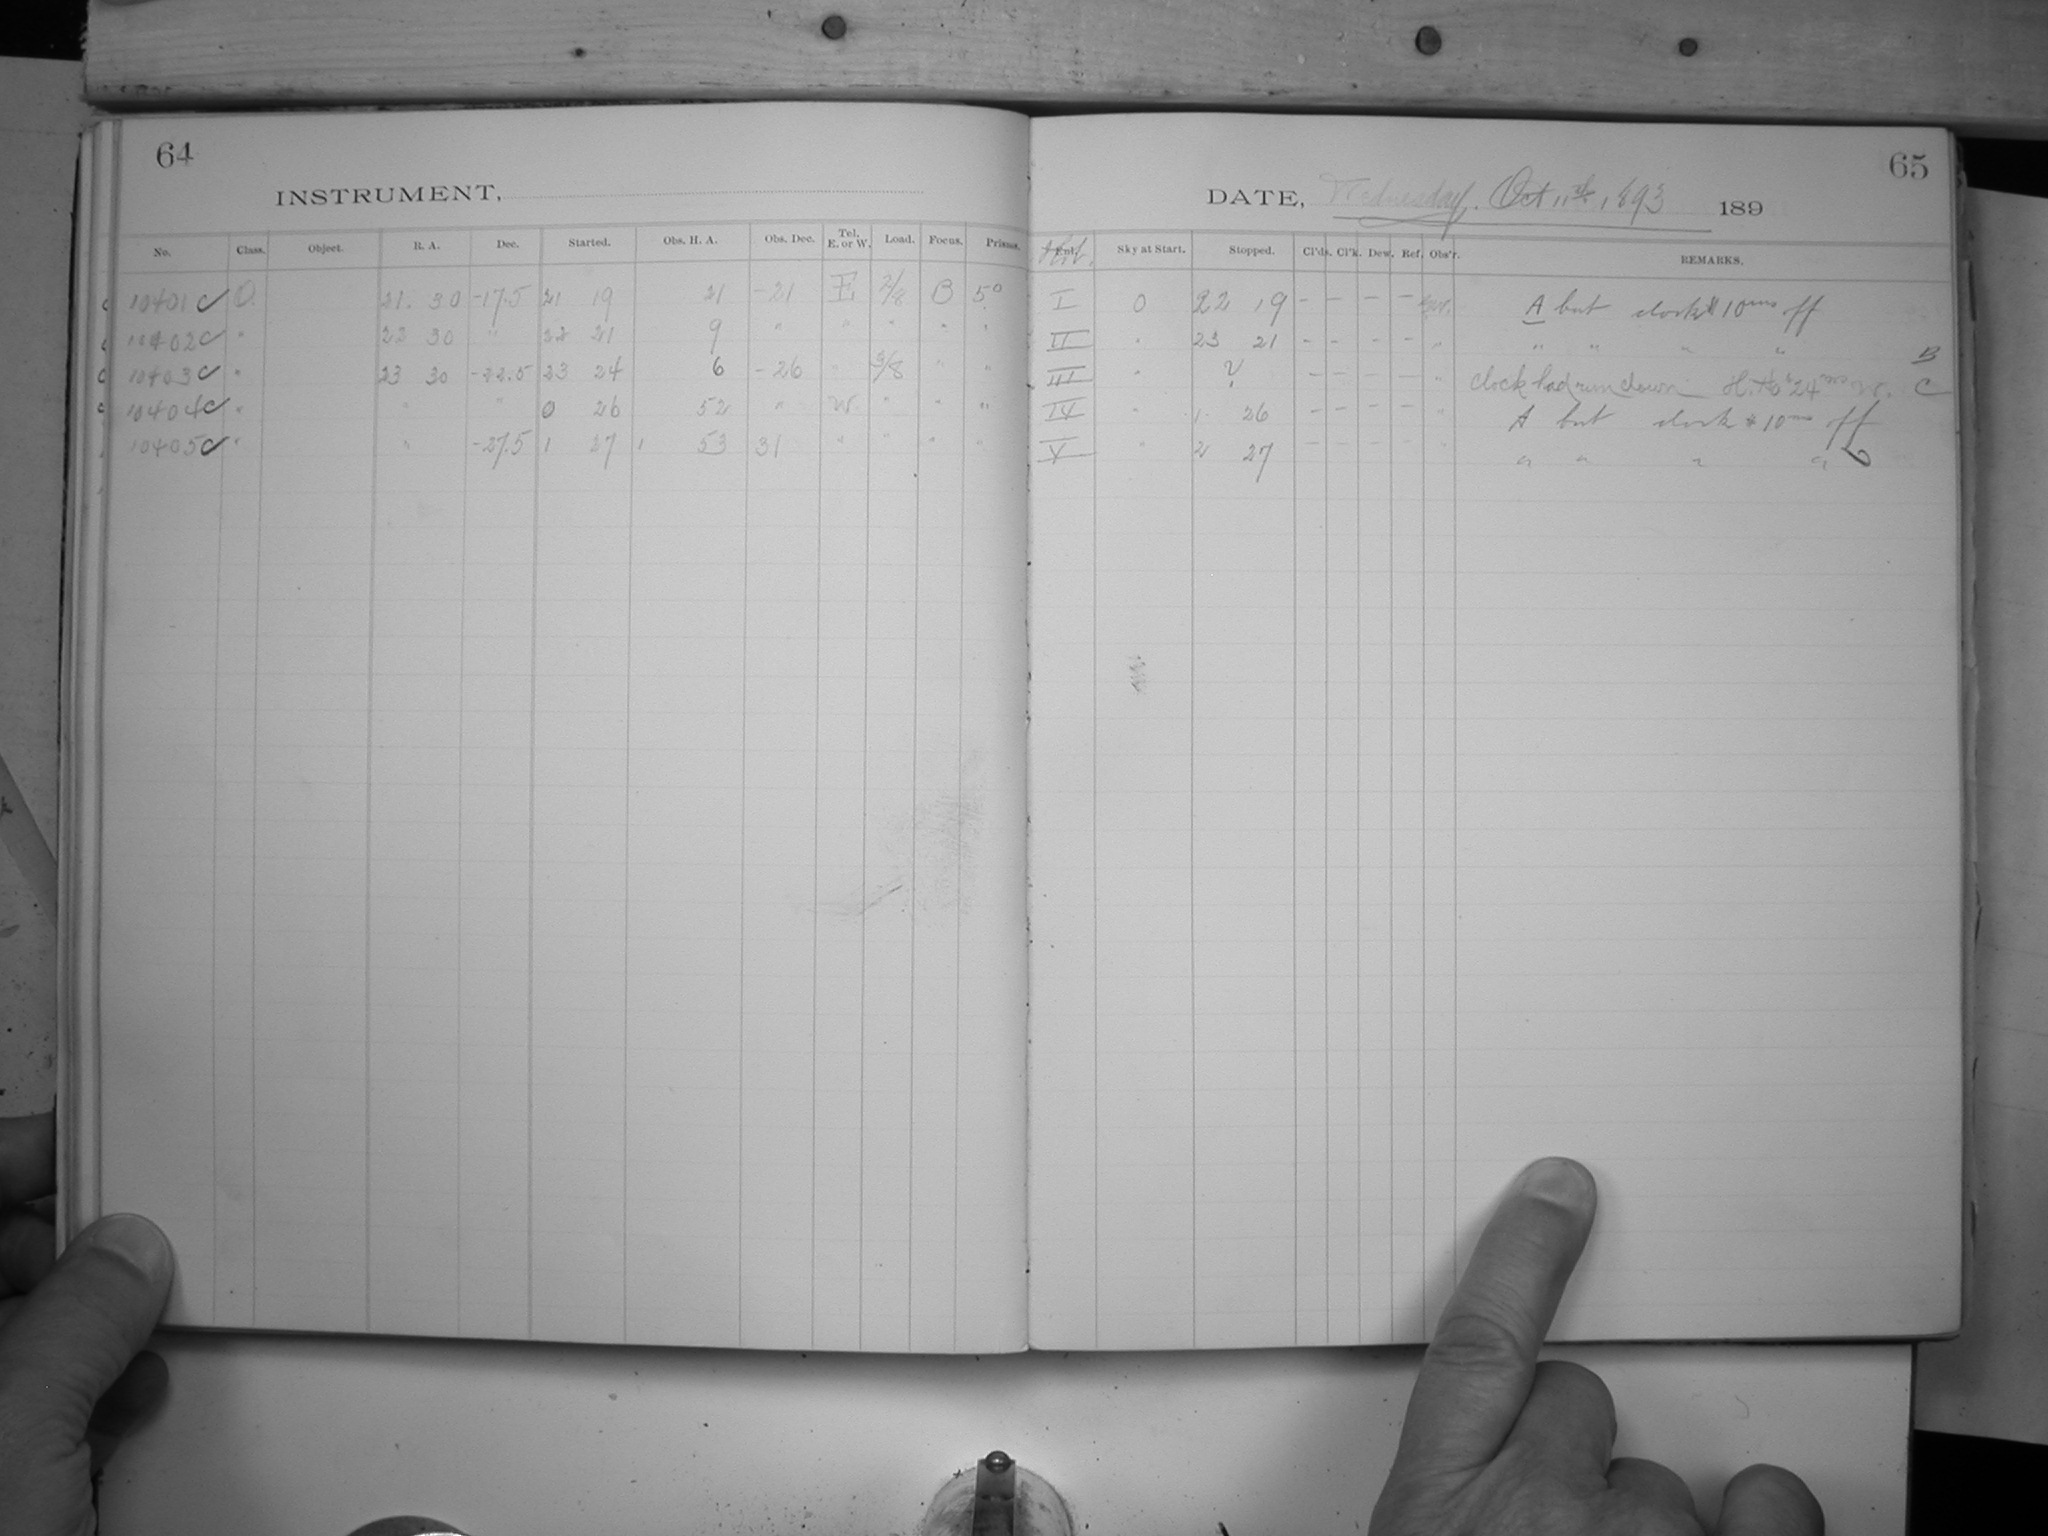 64
INSTRUMENT,
No. Class. Object. R. A. Dec. Started. Obs. H. A. Obs. Dec. Tel. E. or W. Load. Focus. Prisms.
10401 C O. 21. 30 -17.5 21 19 21 -21 E. 2/8 B 5°
10402 C " 22 30 " 22 21 9 " " " " "
10403 C " 23 30 -22.5 23 24 6 -26 " 3/8 " "
10404 C " " " 0 26 52 " W. " " "
10405 C " " -27.5 1 27 1 53 31 " " " "
65
DATE, Wednesday. Oct 11th, 1893 189
Sky at Start. Stopped. Cl'ds. Cl'k. Dew. Ref. Obs'r. REMARKS.
I 0 22 19 - - - - A but clock 10ms off
II " 23 21 - - - - " " " " " B
III " ? - - - - " clock had run down H.A. 24 W. C
IV " 1 26 - - - - " A but clock 10ms off
V " 2 27 - - - - " " " " "